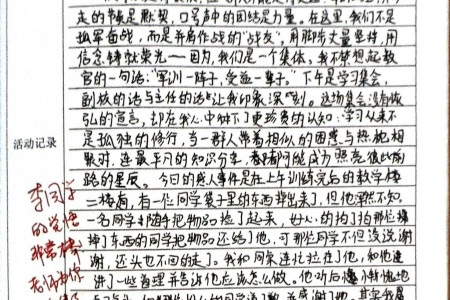 走的节奏是默契，口号声中的团结是力量。在这里，我们不是
孤军奋战，而是并肩作战的"战友"，用脚步丈量坚持，用
信念铸就荣光——因为，我们是一个集体。我不禁想起教
官的一句话："军训一阵子，受益一辈子。"下午是学习集会，
副校的话与主任的话让我印象深刻。这场集会没有恢
弘的宣言，却在我心中种下了更珍贵的认知：学习从来不
是孤独的修行，当一群人带着相似的困惑与热忱相
聚时，连最平凡的知识分享，都可能成为照亮彼此前
路的星辰。今日的感人事件是在上午训练完后的教学楼
二楼前，有一位同学袋子里的东西背出来了，但他浑然不知，
一名同学随手把物品捡了起来，好心的
掉了东西的同学把物品还给了他，可那些同学不但没说谢
谢，还头也不回的走了。我和同桌连忙拉住了他，和他连
讲了一些道理并告诉他应该怎么做。他听后
活动记录
李同学
的觉悟
非常棒